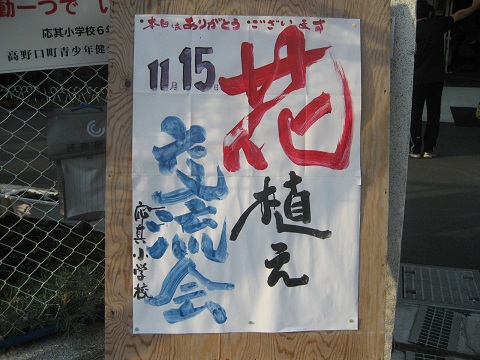 本日はありがとうございます
11月15日
花
植え
交流会
応其小学校
動一つで い
応其小学校6年
高野口町青少年健